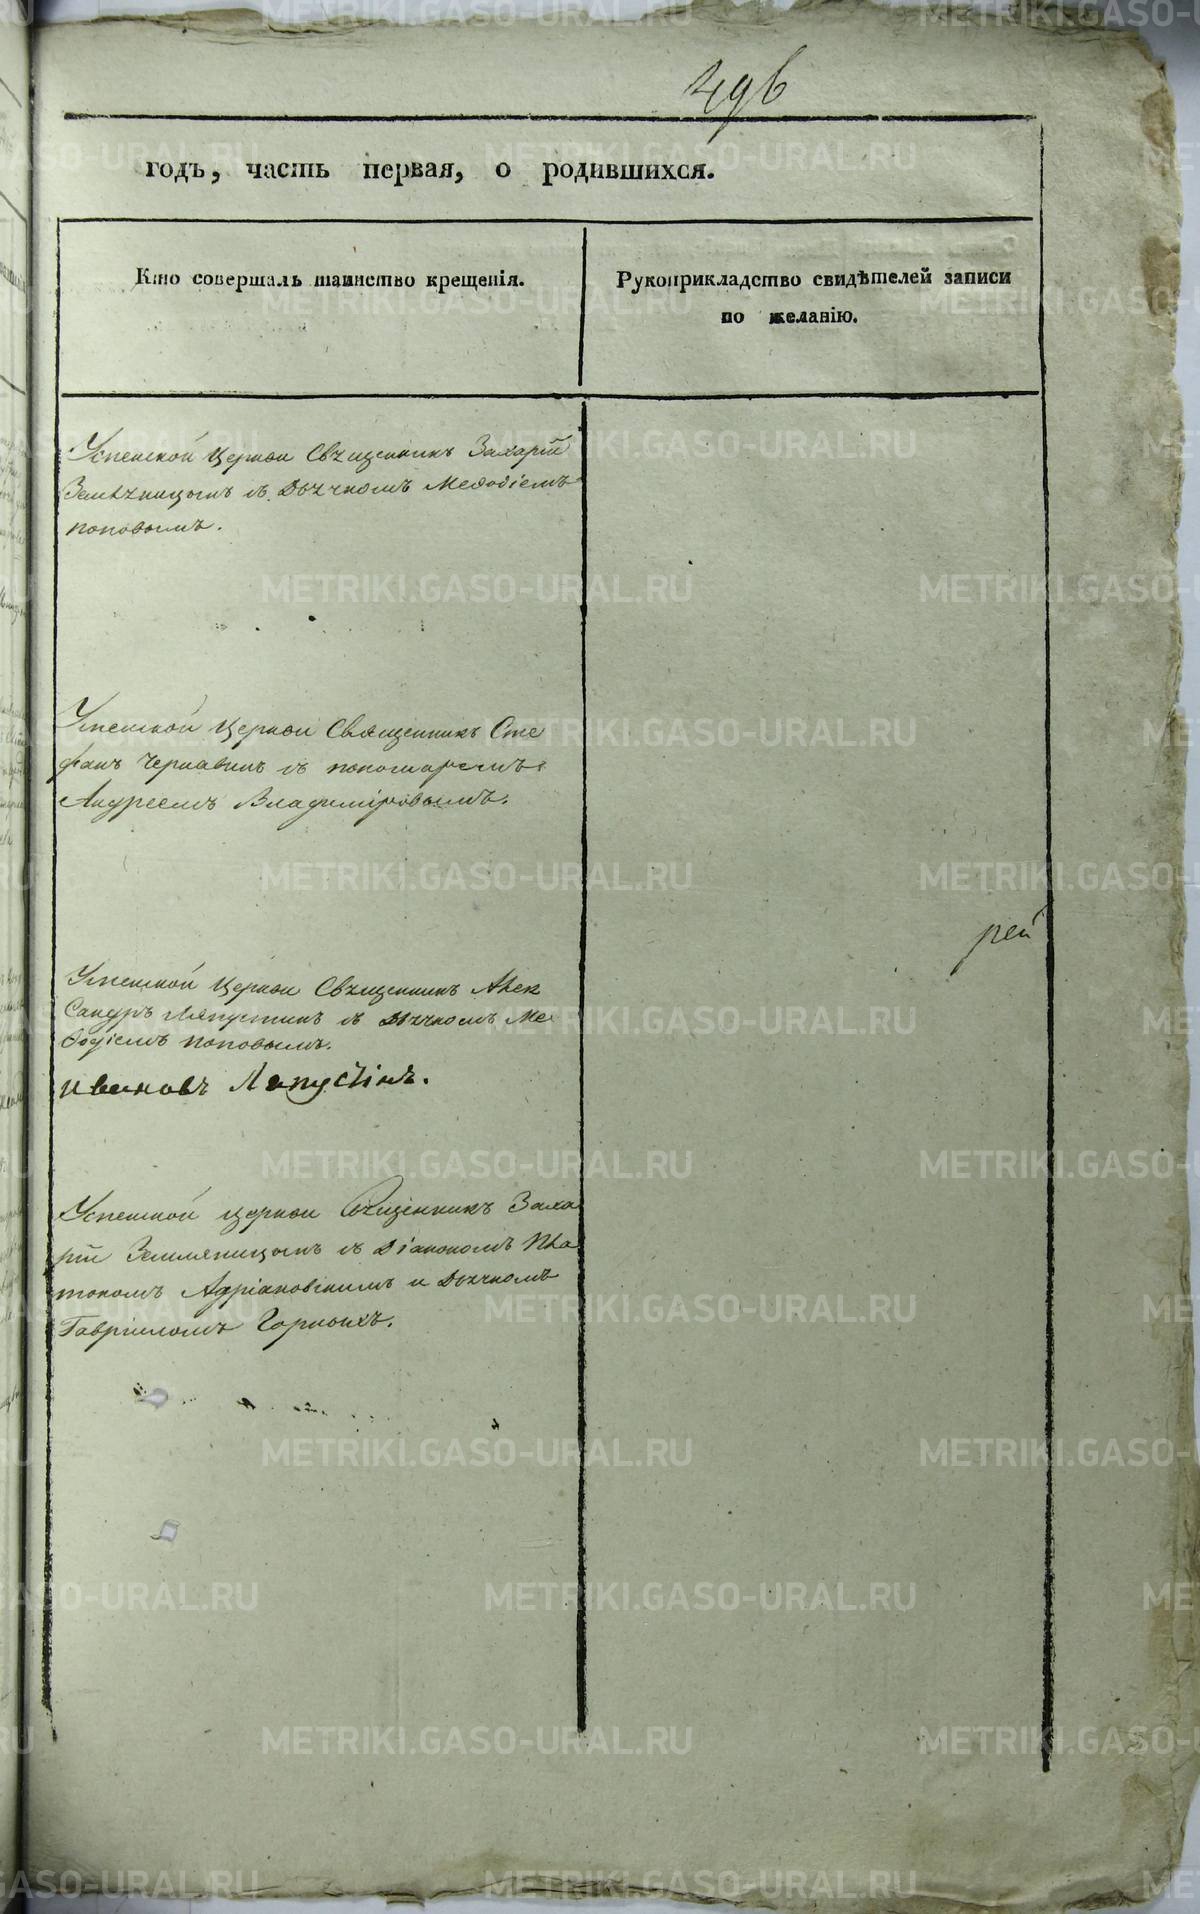 496
годъ, часть первая, о родившихся.
Кто совершалъ таинство крещенія.
Рукоприкладство свидѣтелей записи
по желанію.
Успенской Церкви Священникъ Захарій
Земляницынъ съ Дьячкомъ Меѳодіемъ
поповымъ.
Успенской Церкви Священникъ Сте
фанъ Чернавинъ съ пономаремъ
Андреемъ Владиміровымъ.
рей
Успенской Церкви Священникъ Алек
Сандръ Ляпустинъ съ Дьячкомъ Ме
ѳодіемъ поповымъ.
Ляпустінъ.
Успенской церкви Священникъ Заха
рій Земляницынъ съ Діакономъ Пла
тономъ Адріановскимъ и Дьячкомъ
Гавріиломъ Горныхъ.
METRIKI.GASO-URAL.RU